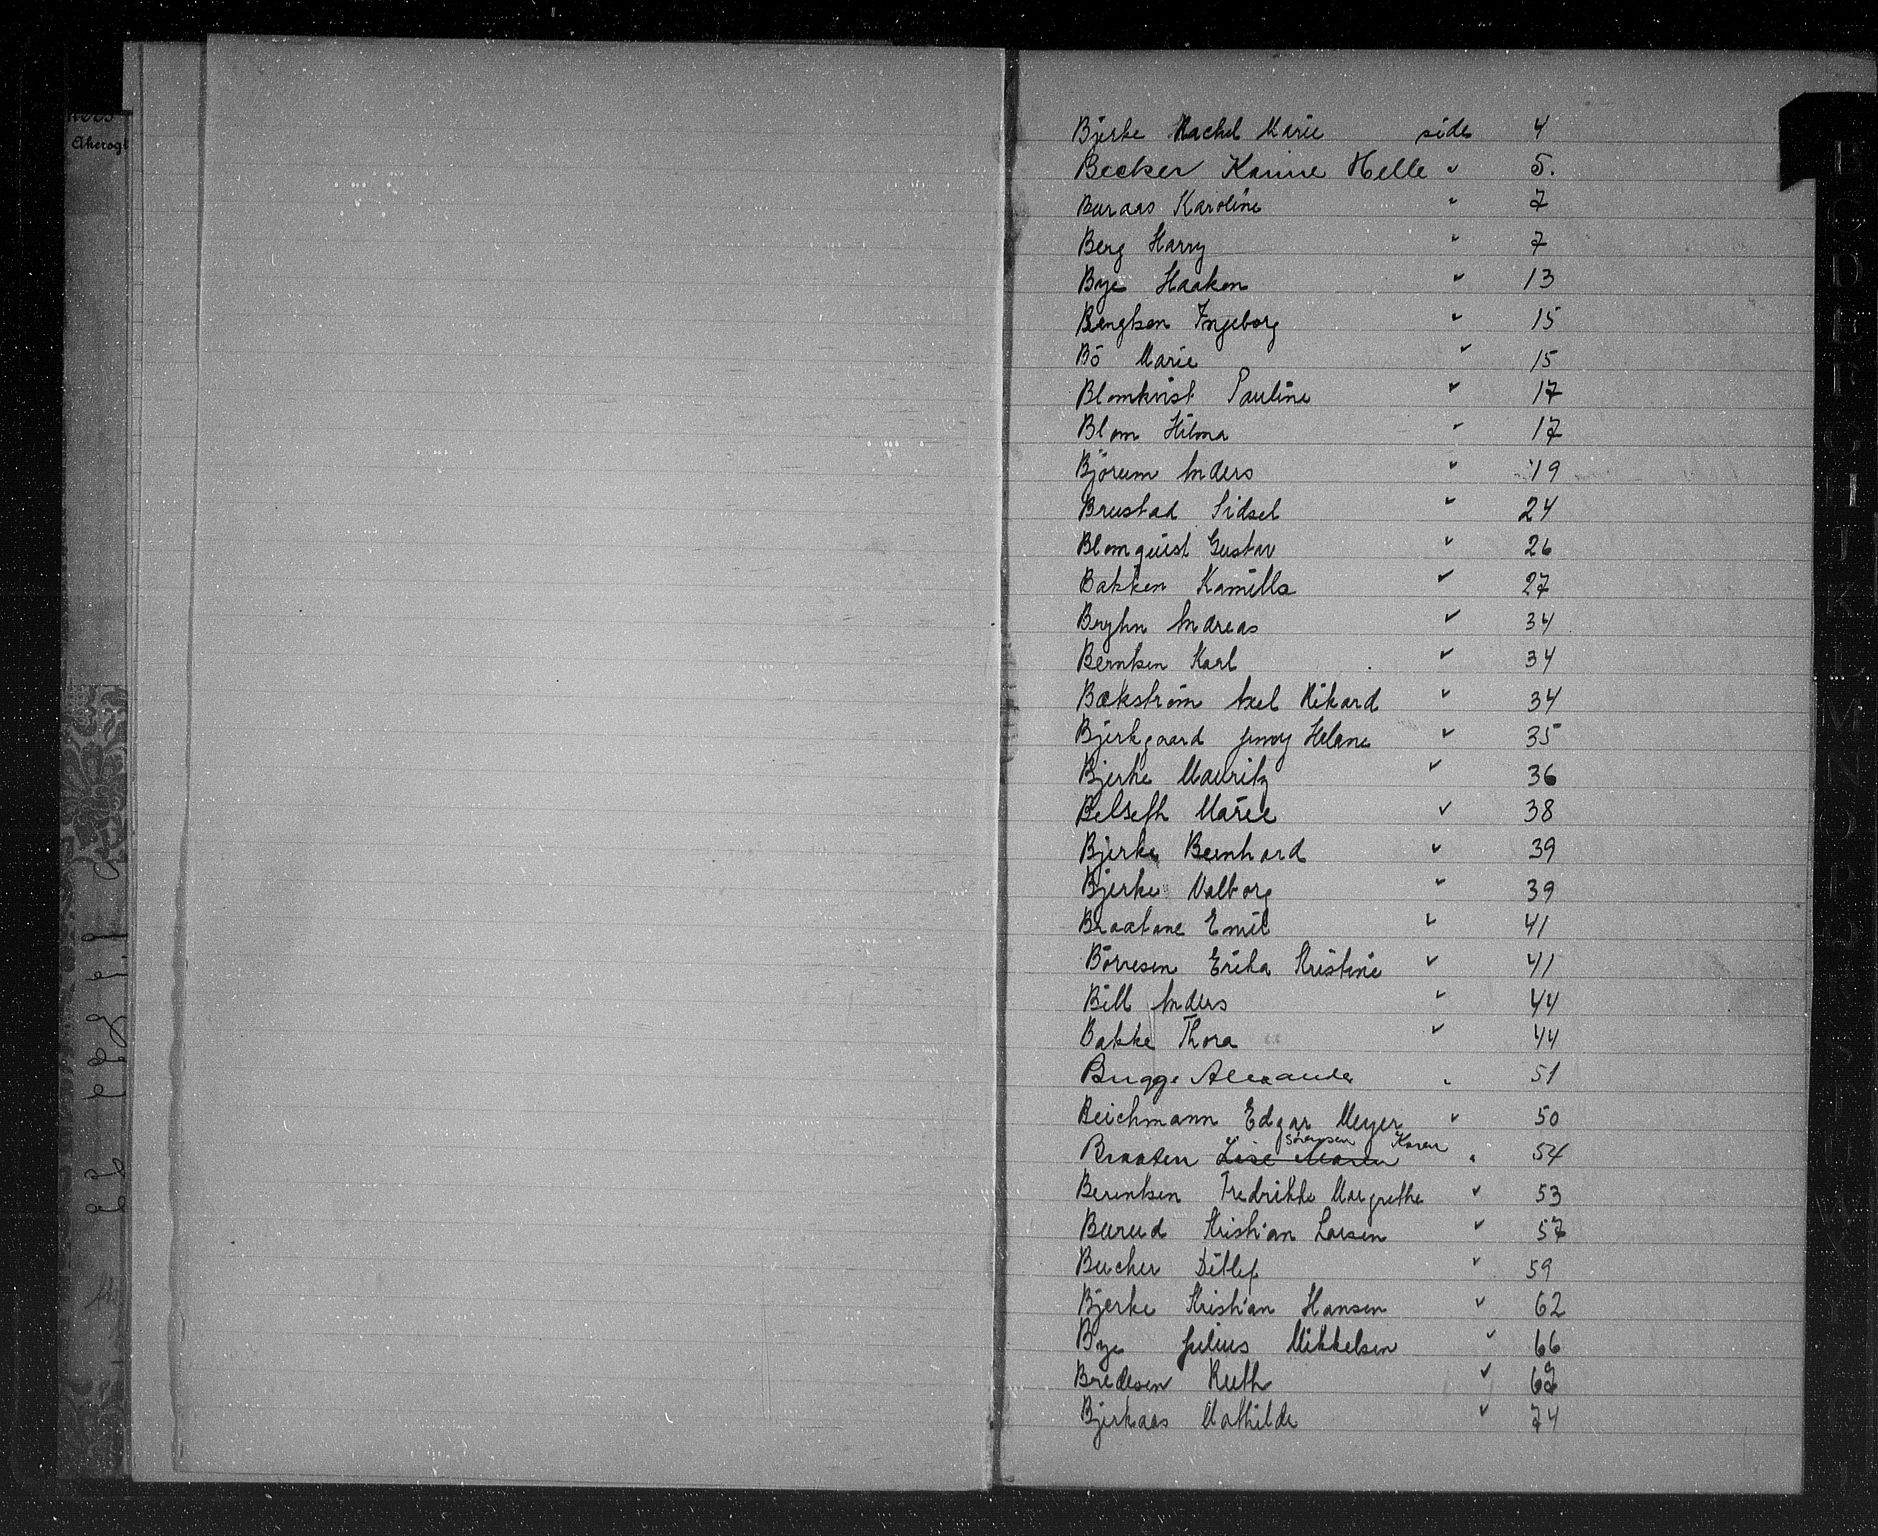 Akersg
Bjerke Rachel Marie side 4
Becker Karine Helle " 5.
Buraas Karoline " 7
Berg Harry " 7
Bye Haakon " 13
Bengtson Ingeborg " 15
Bö Marie " 15
Blomkvist Pauline " 17
Blom Hilma " 17
Bjørum Anders " 19
Brustad Sidsel " 24
Blomquist Gustav " 26
Bakken Kamilla " 27
Bryhn Andreas " 34
Berntsen Karl " 34
Bækström Axel Rikard " 34
Bjerkgaard Jenny Helene " 35
Bjerke Mauritz " 36
Belseth Marie " 38
Bjerke Bernhard " 39
Bjerke Valborg " 39
Braatane Emil " 41
Börresen Erika Kristine " 41
Bill Anders " 44
Bakke Thora " 44
Bugge Alexander " 51
Beichmann Edgar Meyer " 50
Braaten Lise Maren Sørensen Karen " 54
Berentsen Fredrikke Margrethe " 53
Burud Kristian Larsen " 57
Bucher Ditlef " 59
Bjerke Kristian Hansen " 62
Bye Julius Mikkelsen " 66
Bredesen Ruth "
Bjerkaas Mathilde " 74